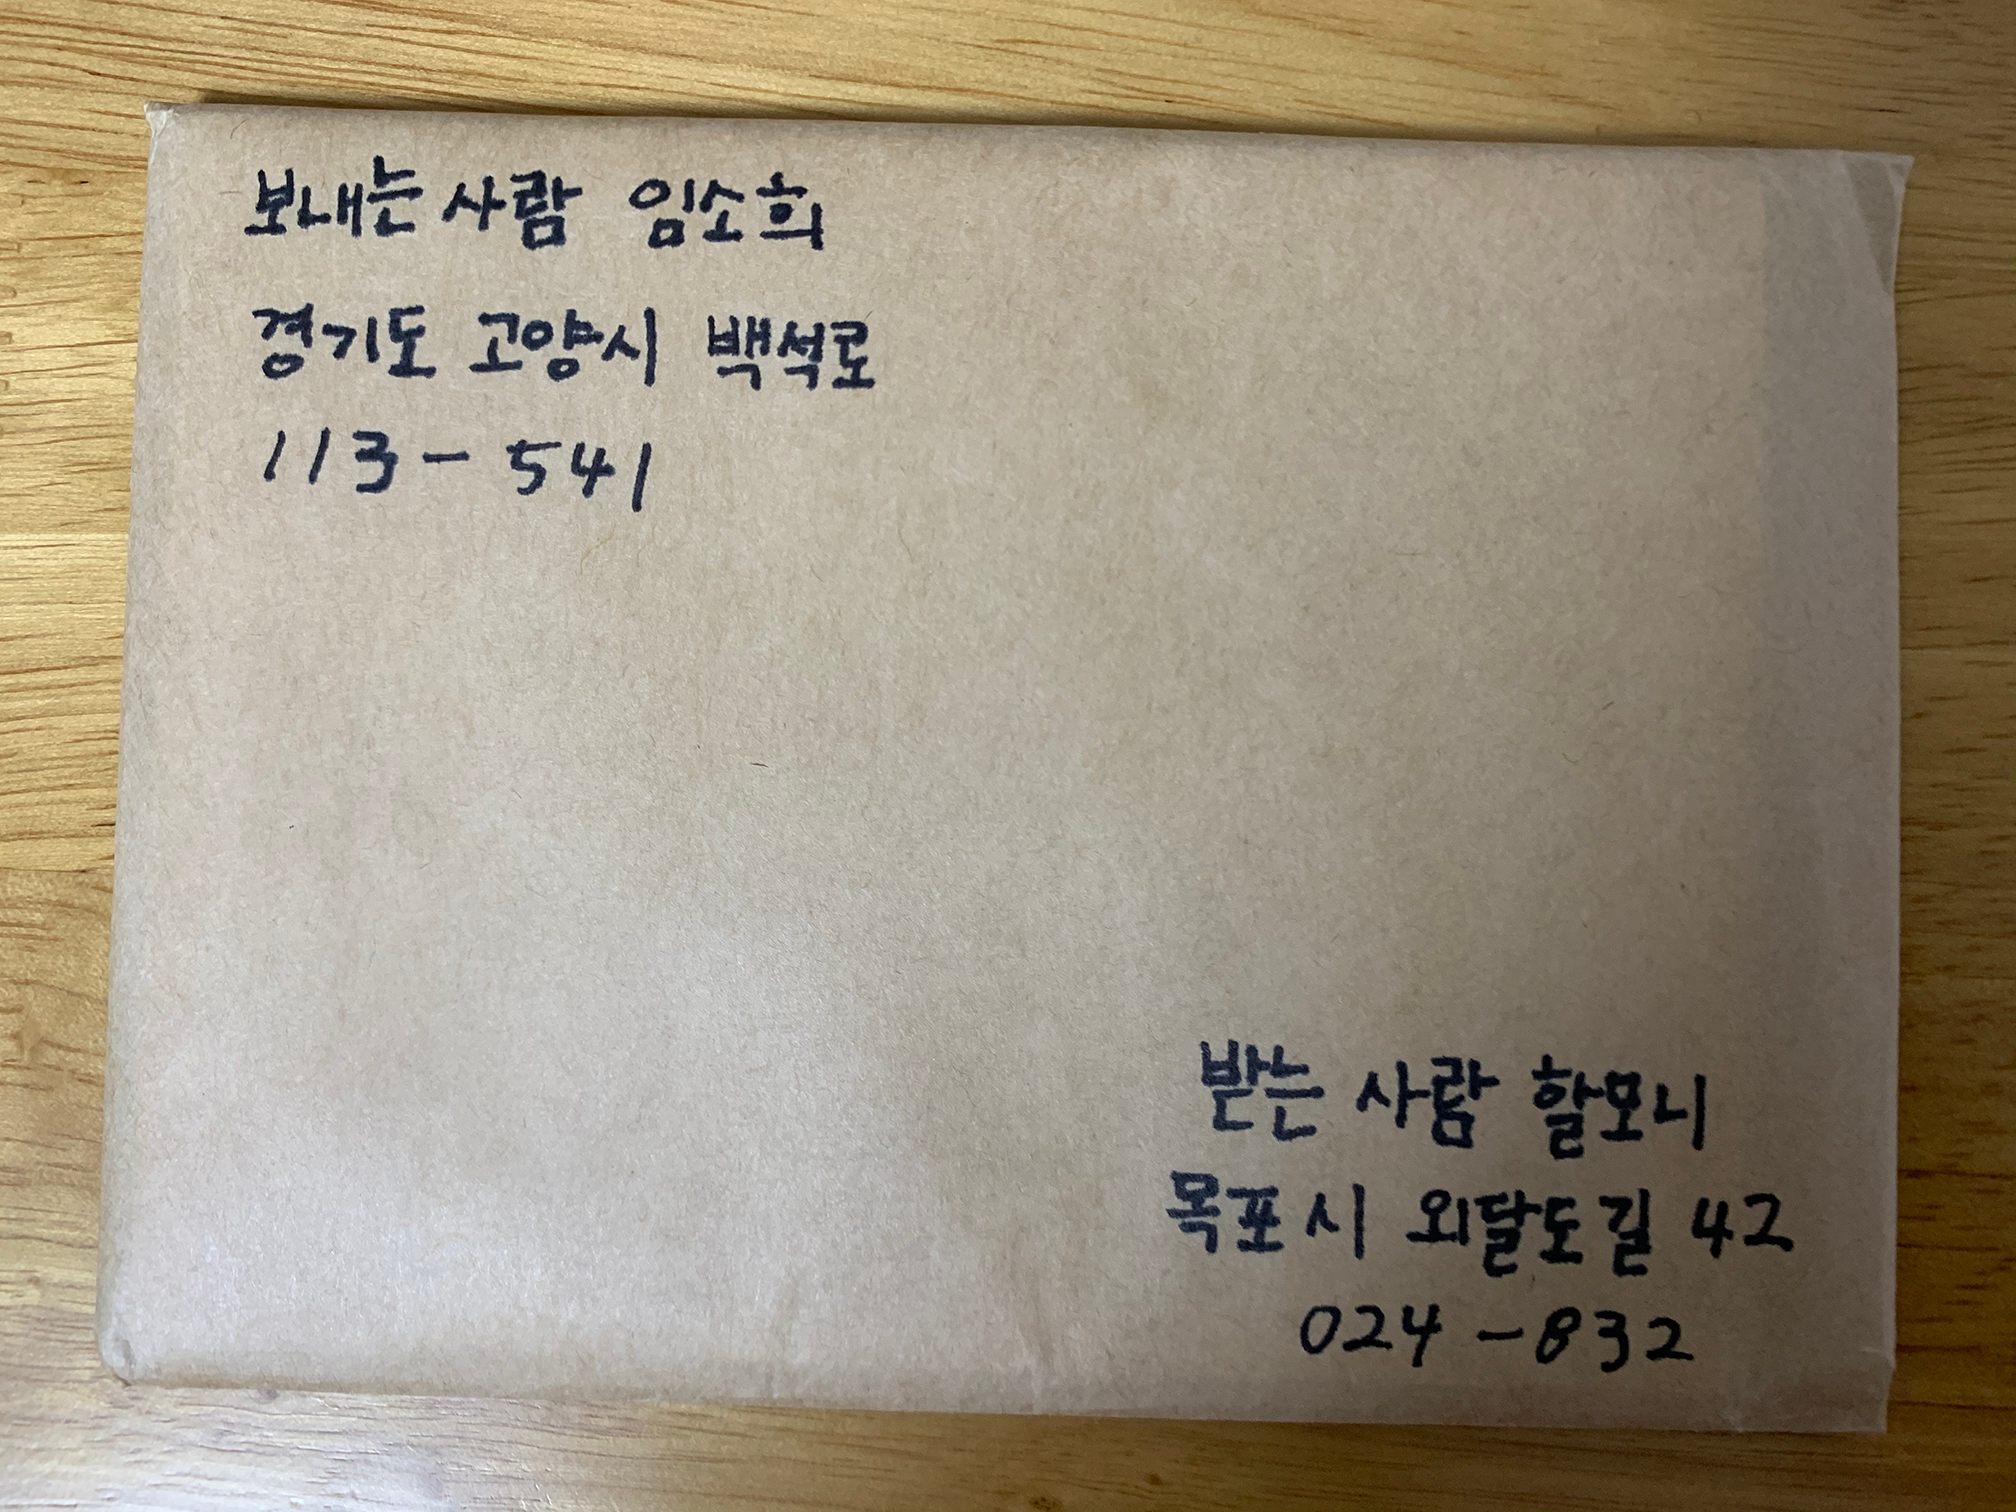 보내는 사람 임소희
경기도 고양시 백석로
113-541
받는 사람 할모니
목포시 외달도길 42
024-832